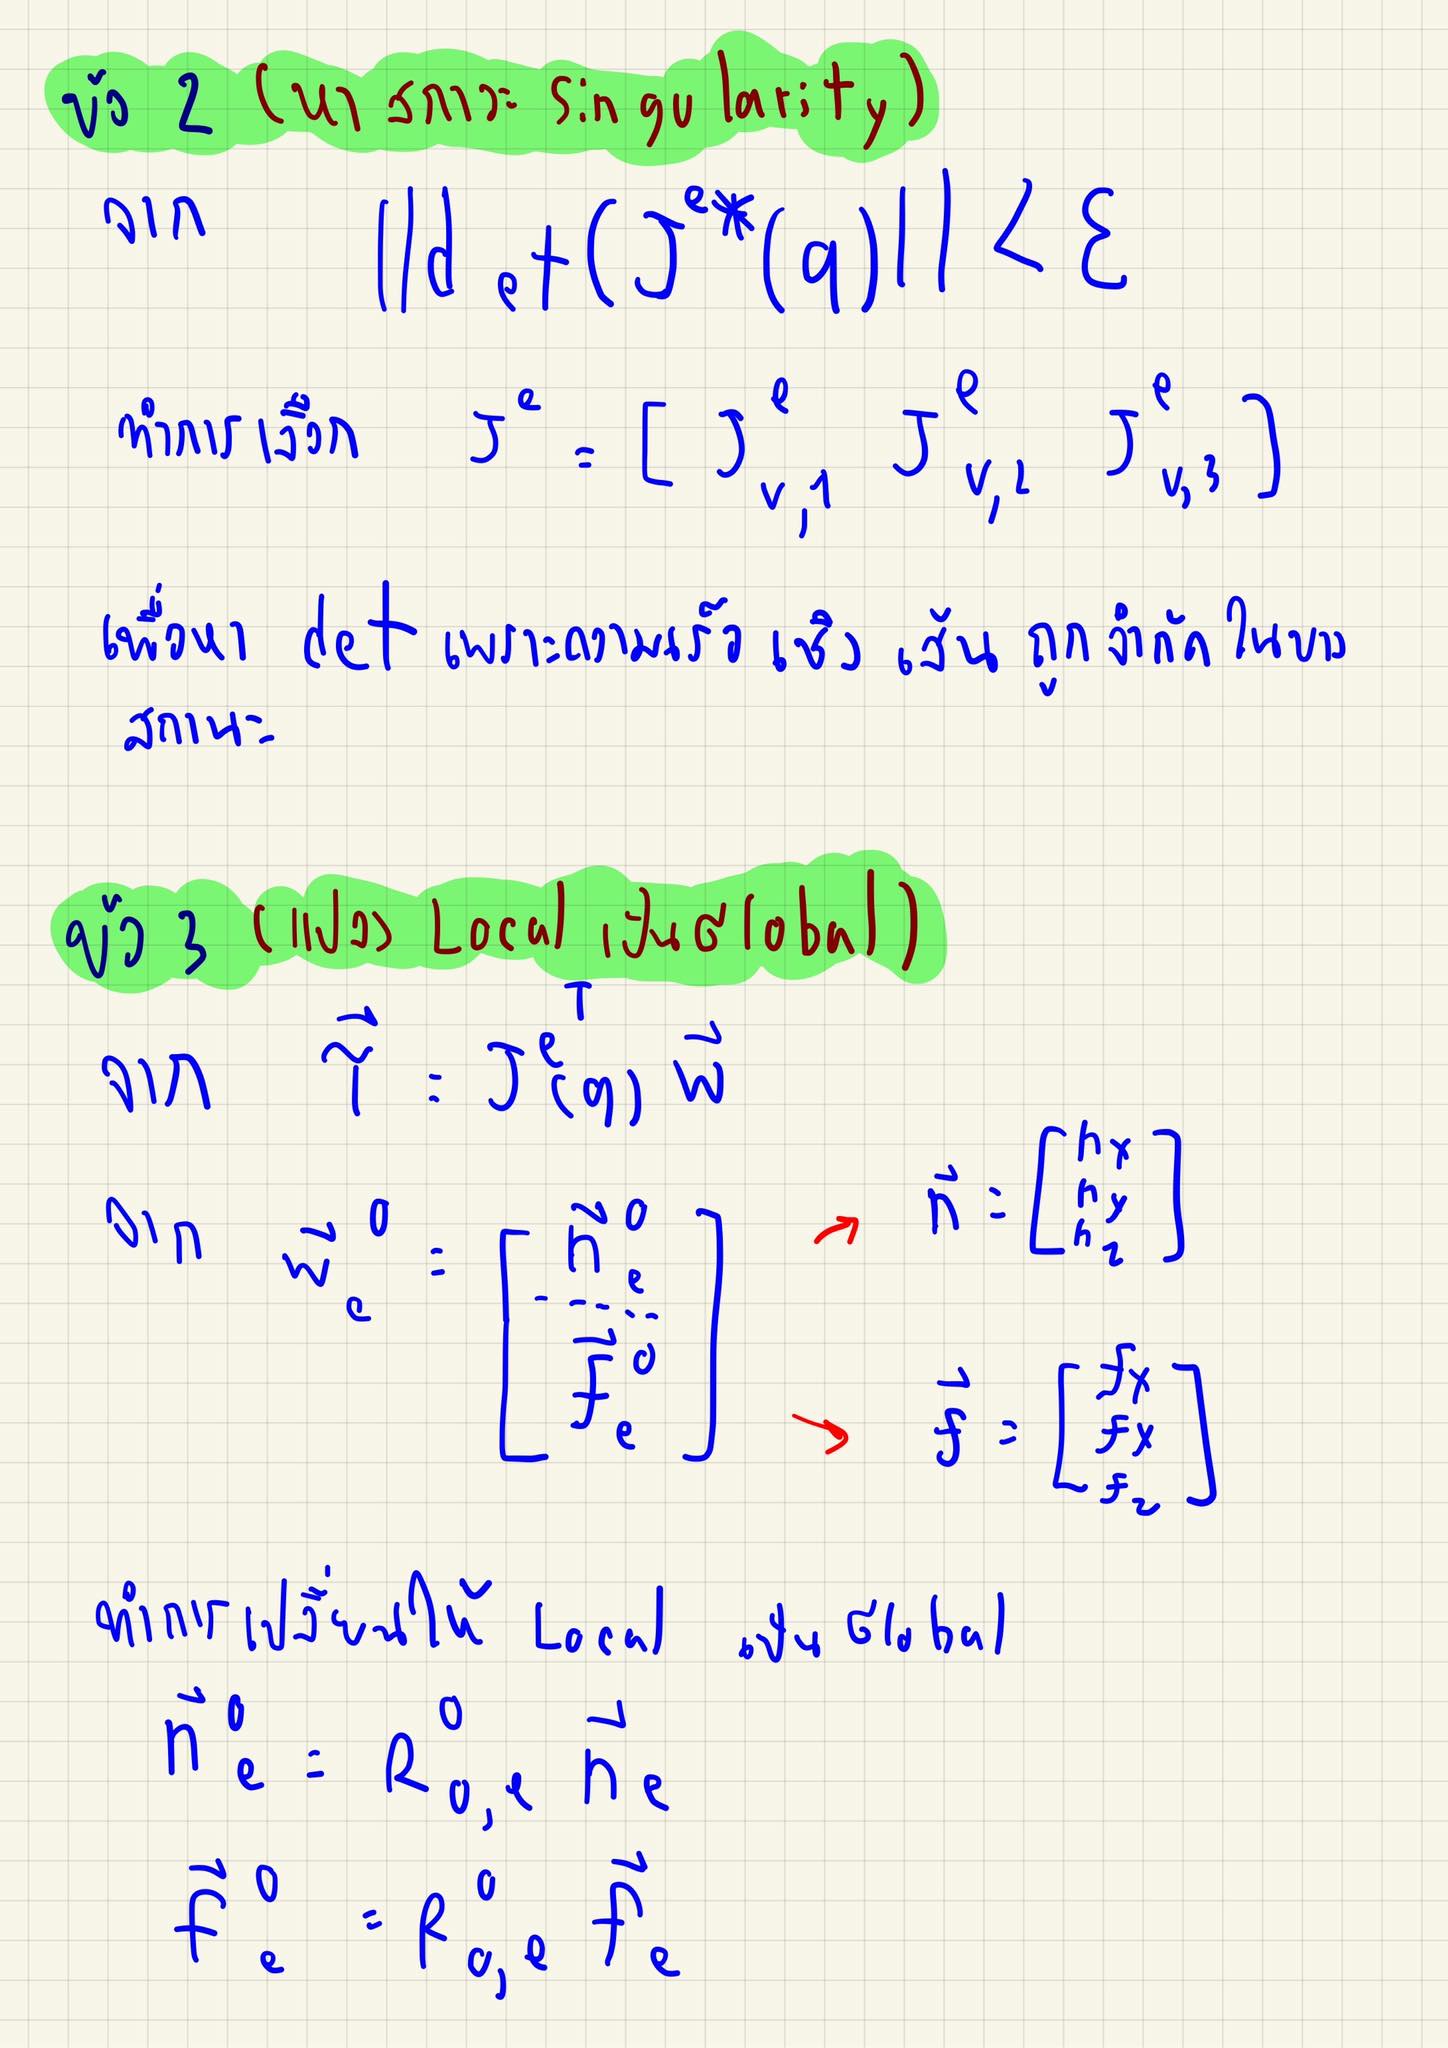 ข้อ 2 (หา สภาวะ singularity)
จาก ||det(J^{e*}(q)|| < ε
ทำการเลือก J^e = [ J^e_{v,1} J^e_{v,2} J^e_{v,3} ]
เพื่อหา det เพราะความเร็ว เชิง เส้น ถูกจำกัดในบาง
สถานะ
ข้อ 3 (แปลง Local เป็น Global)
จาก τ⃗ = J^{e^T}(q) w⃗
จาก w⃗^0_e = [ n⃗^0_e ----- f⃗^0_e ]
→ n⃗ = [ n_x n_y n_z ]
→ f⃗ = [ f_x f_x f_z ]
ทำการเปลี่ยนให้ Local เป็น Global
n⃗^0_e = R^0_{0,e} n⃗_e
f⃗^0_e = R^0_{0,e} f⃗_e